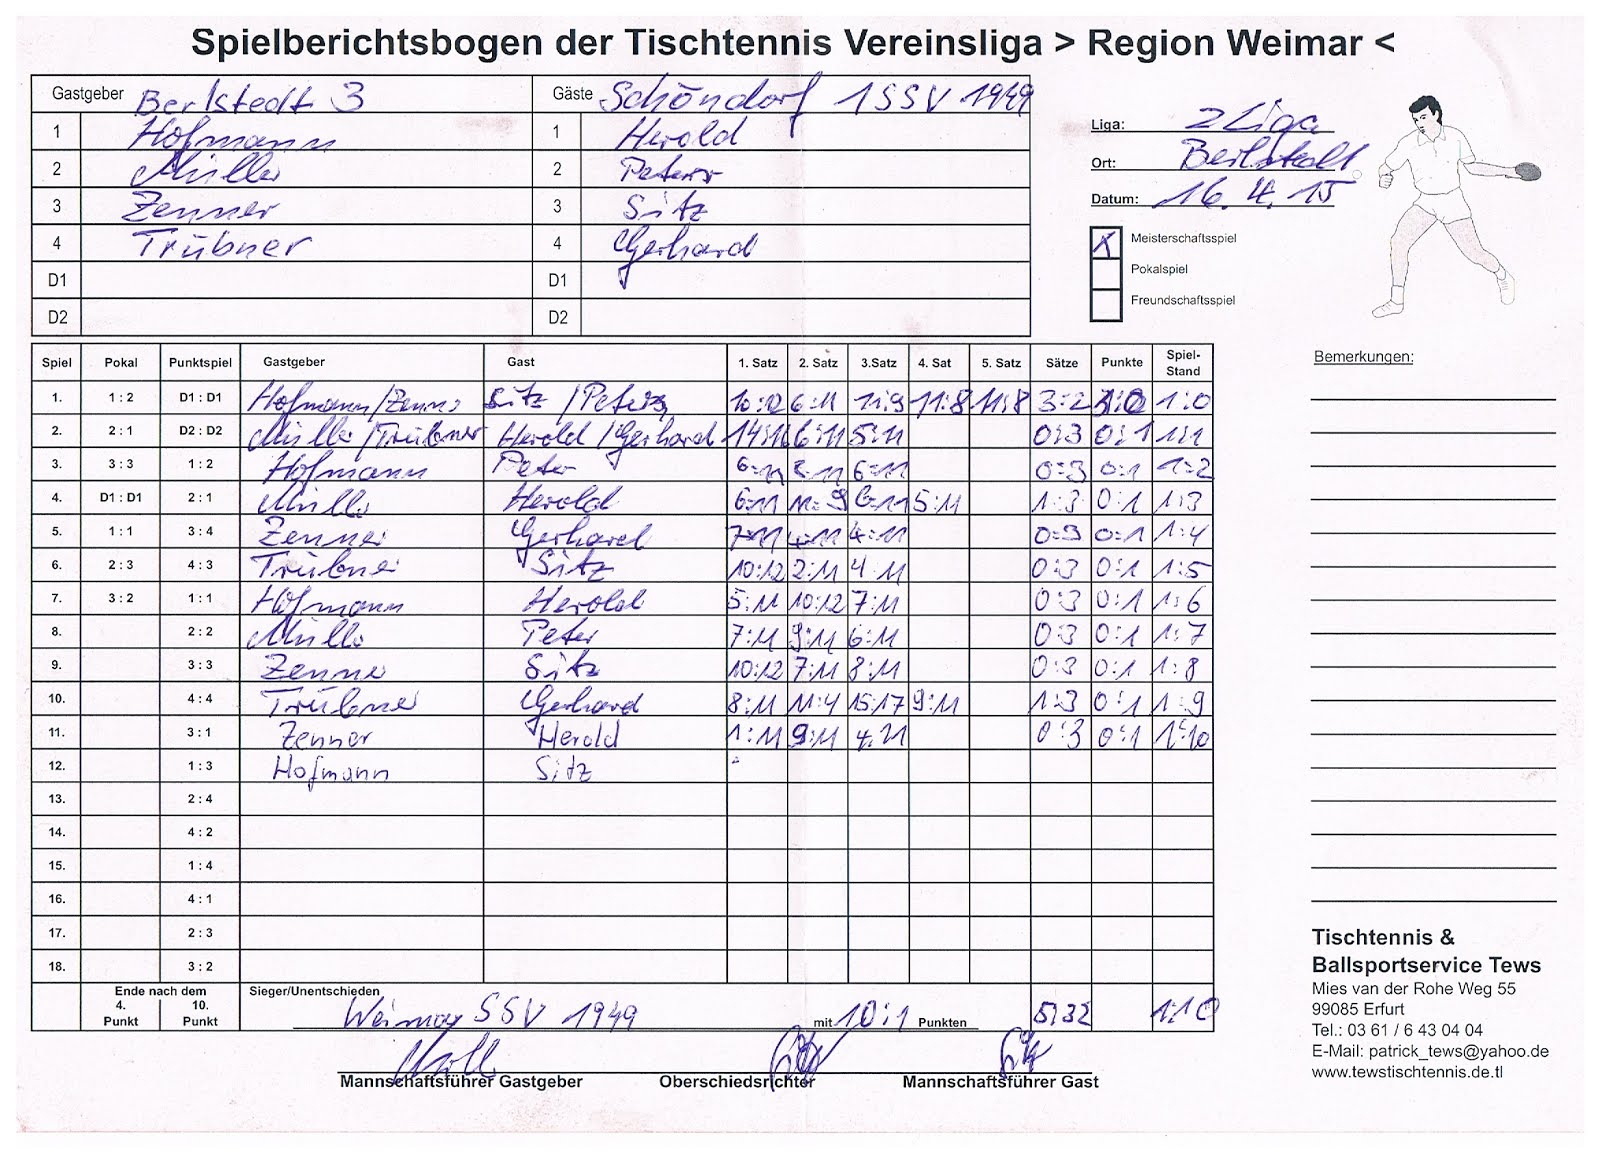 Spielberichtsbogen der Tischtennis Vereinsliga > Region Weimar <
Gastgeber Berlstedt 3 Gäste Schöndorf 1 SSV 1949
1 Hofmann 1 Herold
2 Müller 2 Peters
3 Zenner 3 Sitz
4 Trübner 4 Gerhard
D1 D1
D2 D2
Liga: 2 Liga
Ort: Berlstedt
Datum: 16.4.15
X Meisterschaftsspiel
Pokalspiel
Freundschaftsspiel
Bemerkungen:
Spiel Pokal Punktspiel Gastgeber Gast 1. Satz 2. Satz 3.Satz 4. Sat 5. Satz Sätze Punkte Spiel-Stand
1. 1 : 2 D1 : D1 Hofmann/Zenner Sitz /Peters 10:12 6:11 11:9 11:8 11:8 3:2 1:0 1:0
2. 2 : 1 D2 : D2 Müller/Trübner Herold/Gerhard 14:16 6:11 5:11 0:3 0:1 1:1
3. 3 : 3 1 : 2 Hofmann Peter 6:11 8:11 6:11 0:3 0:1 1:2
4. D1 : D1 2 : 1 Müller Herold 6:11 11:9 6:11 5:11 1:3 0:1 1:3
5. 1 : 1 3 : 4 Zenner Gerhard 7:11 4:11 4:11 0:3 0:1 1:4
6. 2 : 3 4 : 3 Trübner Sitz 10:12 2:11 4:11 0:3 0:1 1:5
7. 3 : 2 1 : 1 Hofmann Herold 5:11 10:12 7:11 0:3 0:1 1:6
8. 2 : 2 Müller Peter 7:11 9:11 6:11 0:3 0:1 1:7
9. 3 : 3 Zenner Sitz 10:12 7:11 8:11 0:3 0:1 1:8
10. 4 : 4 Trübner Gerhard 8:11 11:4 15:17 9:11 1:3 0:1 1:9
11. 3 : 1 Zenner Herold 1:11 9:11 4:11 0:3 0:1 1:10
12. 1 : 3 Hofmann Sitz
13. 2 : 4
14. 4 : 2
15. 1 : 4
16. 4 : 1
17. 2 : 3
18. 3 : 2
Ende nach dem 4. Punkt 10. Punkt Sieger/Unentschieden Weimar SSV 1949 mit 10:1 Punkten 5:32 1:10
Mannschaftsführer Gastgeber Oberschiedsrichter Mannschaftsführer Gast
Tischtennis &
Ballsportservice Tews
Mies van der Rohe Weg 55
99085 Erfurt
Tel.: 03 61 / 6 43 04 04
E-Mail: patrick_tews@yahoo.de
www.tewstischtennis.de.tl